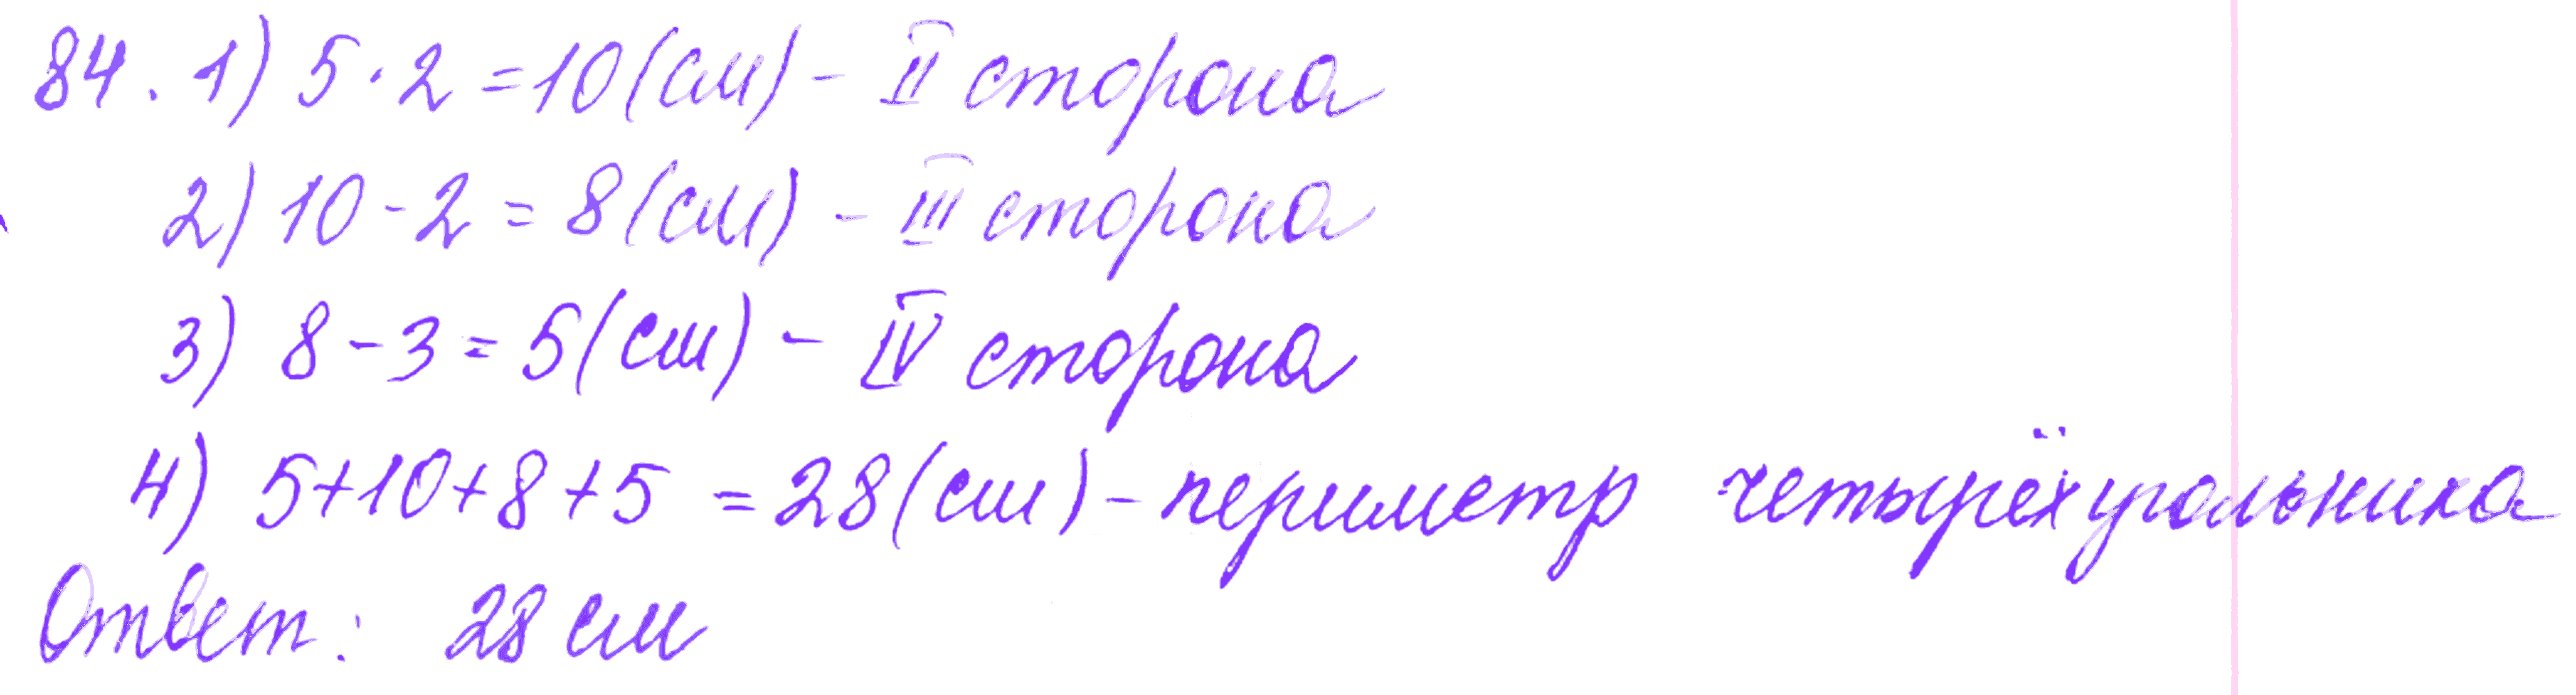 84. 1) 5·2=10(см) - II сторона
2) 10-2=8(см) - III сторона
3) 8-3=5(см) - IV сторона
4) 5+10+8+5=28(см) - периметр четырёхугольника
Ответ: 28 см